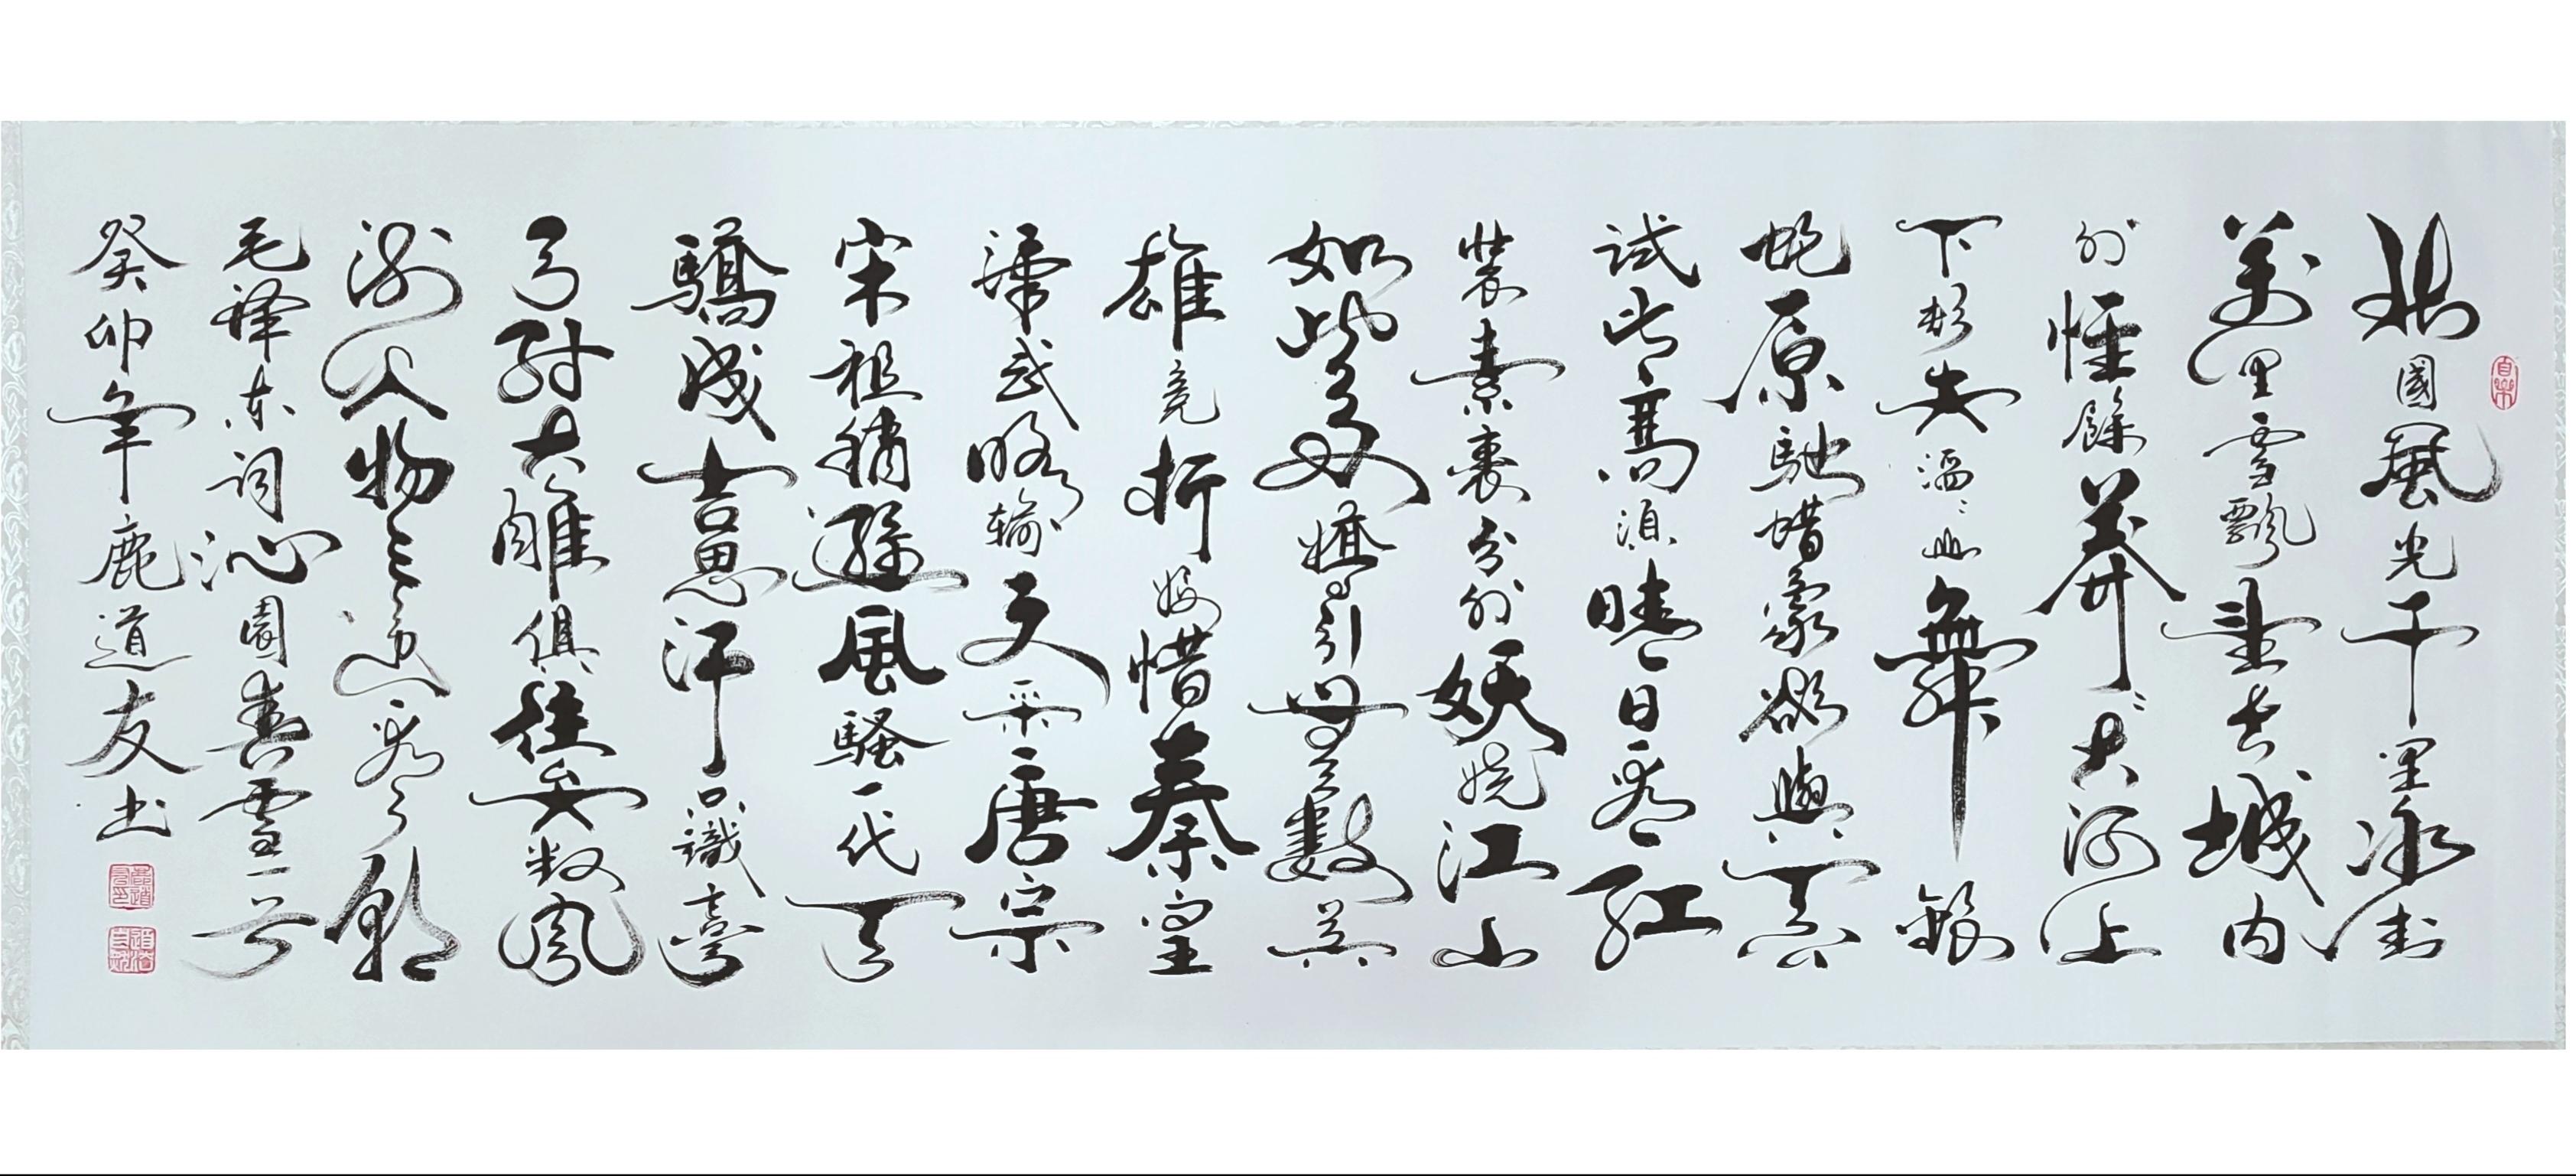 北國風光千里冰封
萬里雪飄望長城内
外惟餘莽〻大河上
下頓失滔〻山舞銀
蛇原馳蠟象欲與天公
試比高須晴日看紅
裝素裹分外妖嬈江山
如此多嬌引無數英
雄競折腰惜秦皇
漢武略輸文采唐宗
宋祖稍遜風騷一代天
驕成吉思汗只識彎
弓射大雕俱往矣数風
流人物還看今朝
毛泽东词沁園春雪一首
癸卯年鹿道友书